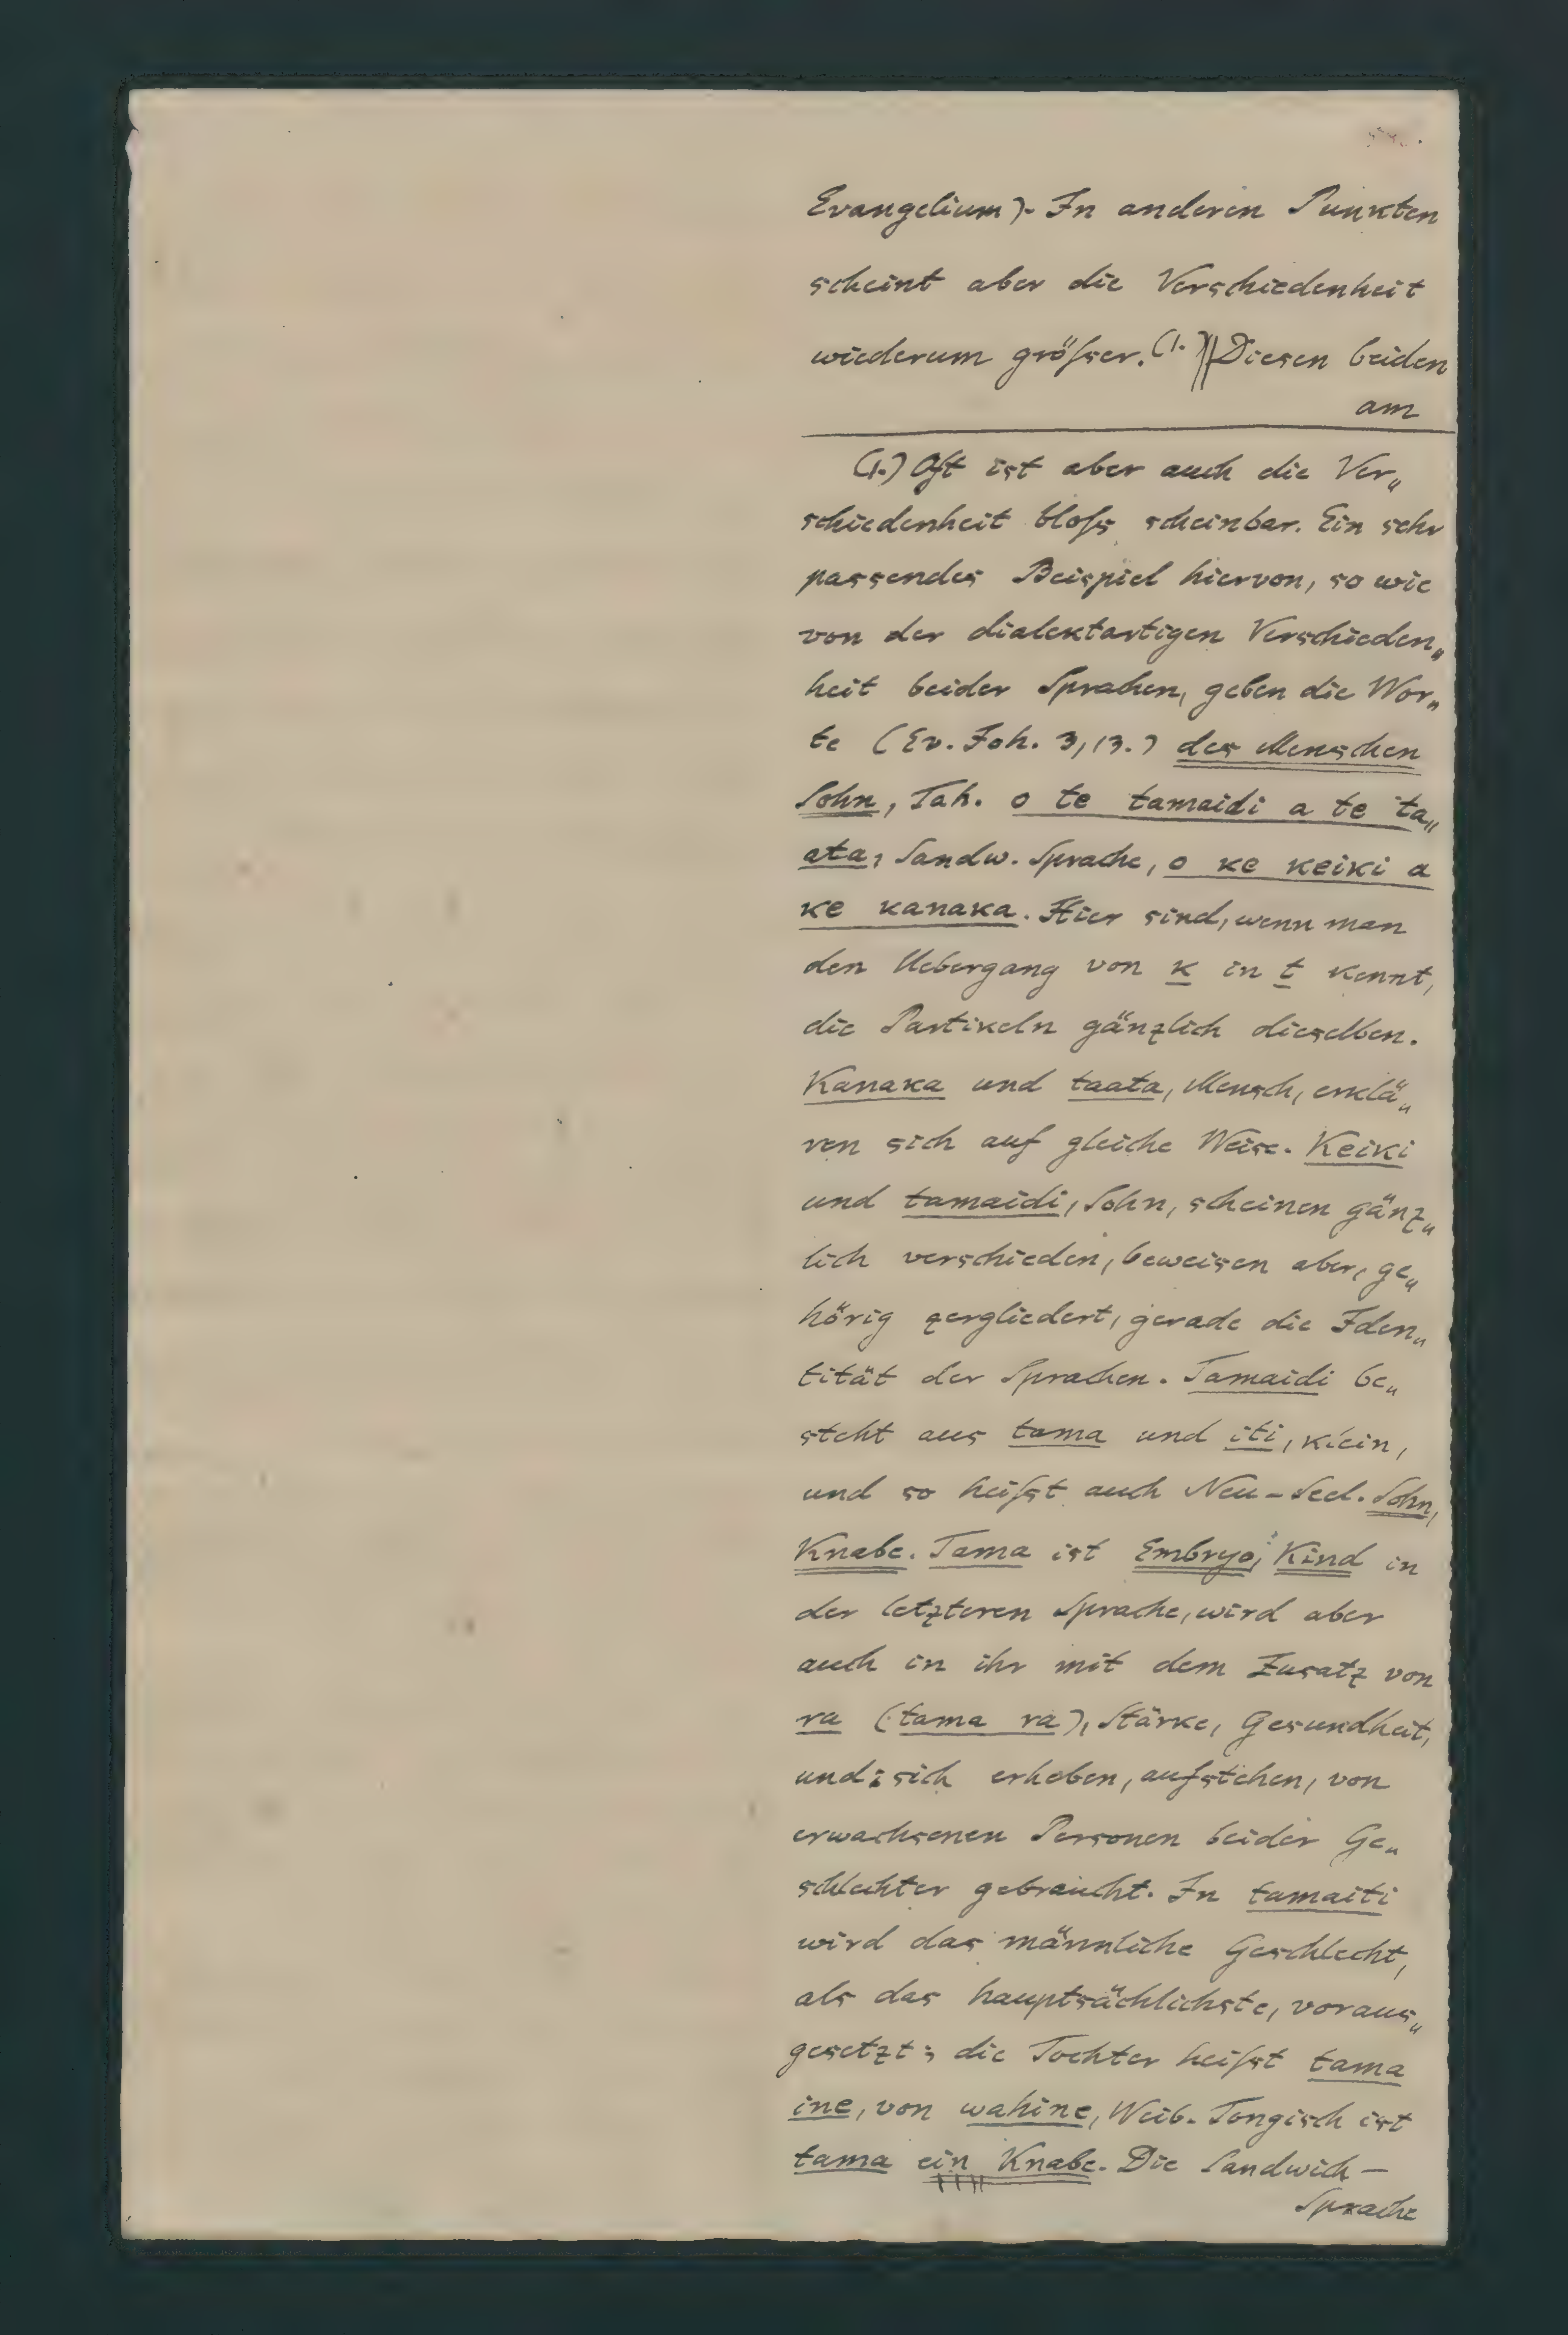 Evangelium). In anderen Punkten
scheint aber die Verschiedenheit
wiederum größser.(1.) || Diesen beiden
am
(1.) Oft ist aber auch die Ver„
schiedenheit bloſs scheinbar. Ein sehr
passendes Beispiel hiervon, so wie
von der dialektartigen Verschieden„
heit beider Sprachen, geben die Wor„
te (Ev. Joh. 3, 13.) des Menschen
Sohn, Tah. o te tamaidi a te ta„
ata, Sandw. Sprache, o ke keiki a
ke kanaka. Hier sind, wenn man
den Uebergang von k in t kennt,
die Partikeln gänzlich dieselben.
Kanaka und taata, Mensch, erklä„
ren sich auf gleiche Weise. Keiki
und tamaidi, Sohn, scheinen gänz„
lich verschieden, beweisen aber, ge„
hörig zergliedert, gerade die Iden„
tität der Sprachen. Tamaidi be„
steht aus tama und iti, klein,
und so heiſst auch Neu-Seel. Sohn,
Knabe. Tama ist Embryo, Kind in
der letzteren Sprache, wird aber
auch in ihr mit dem Zusatz von
ra (tama ra), Stärke, Gesundheit,
und: sich erheben, aufstehen, von
erwachsenen Personen beider Ge„
schlechter gebraucht. In tamaiti
wird das männliche Geschlecht,
als das hauptsächlichste, voraus„
gesetzt; die Tochter heiſst tama
ine, von wahine, Weib. Tongisch ist
tama ein Knabe. Die Sandwich-
Sprache